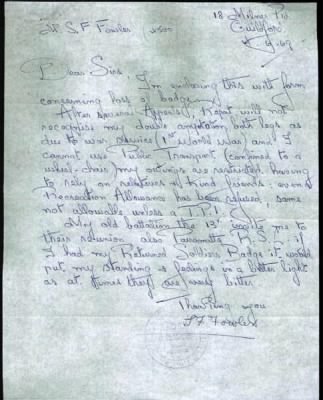 18 Milner Rd
W. S. F Fowler
Guildford
67
Dear Sirs
I'm enclosing this with form
concerning loss of badge
After several Appeals, Repat will not
recognise my double amputation both legs as
due to war service (1st World War) and I
cannot use Public Transport (confined to a
wheel-chair) my outings are restricted, having
to rely on relatives or kind friends. even
Recreation Allowance has been refused, same
not allowable unless a T.P.I.
My old battalion the 13th invite me to
their reunion also R.S.L. if
I had my Returned Soldiers Badge it would
put my standing & feelings in a better light
as at times they are very bitter
Thanking you
S F Fowler